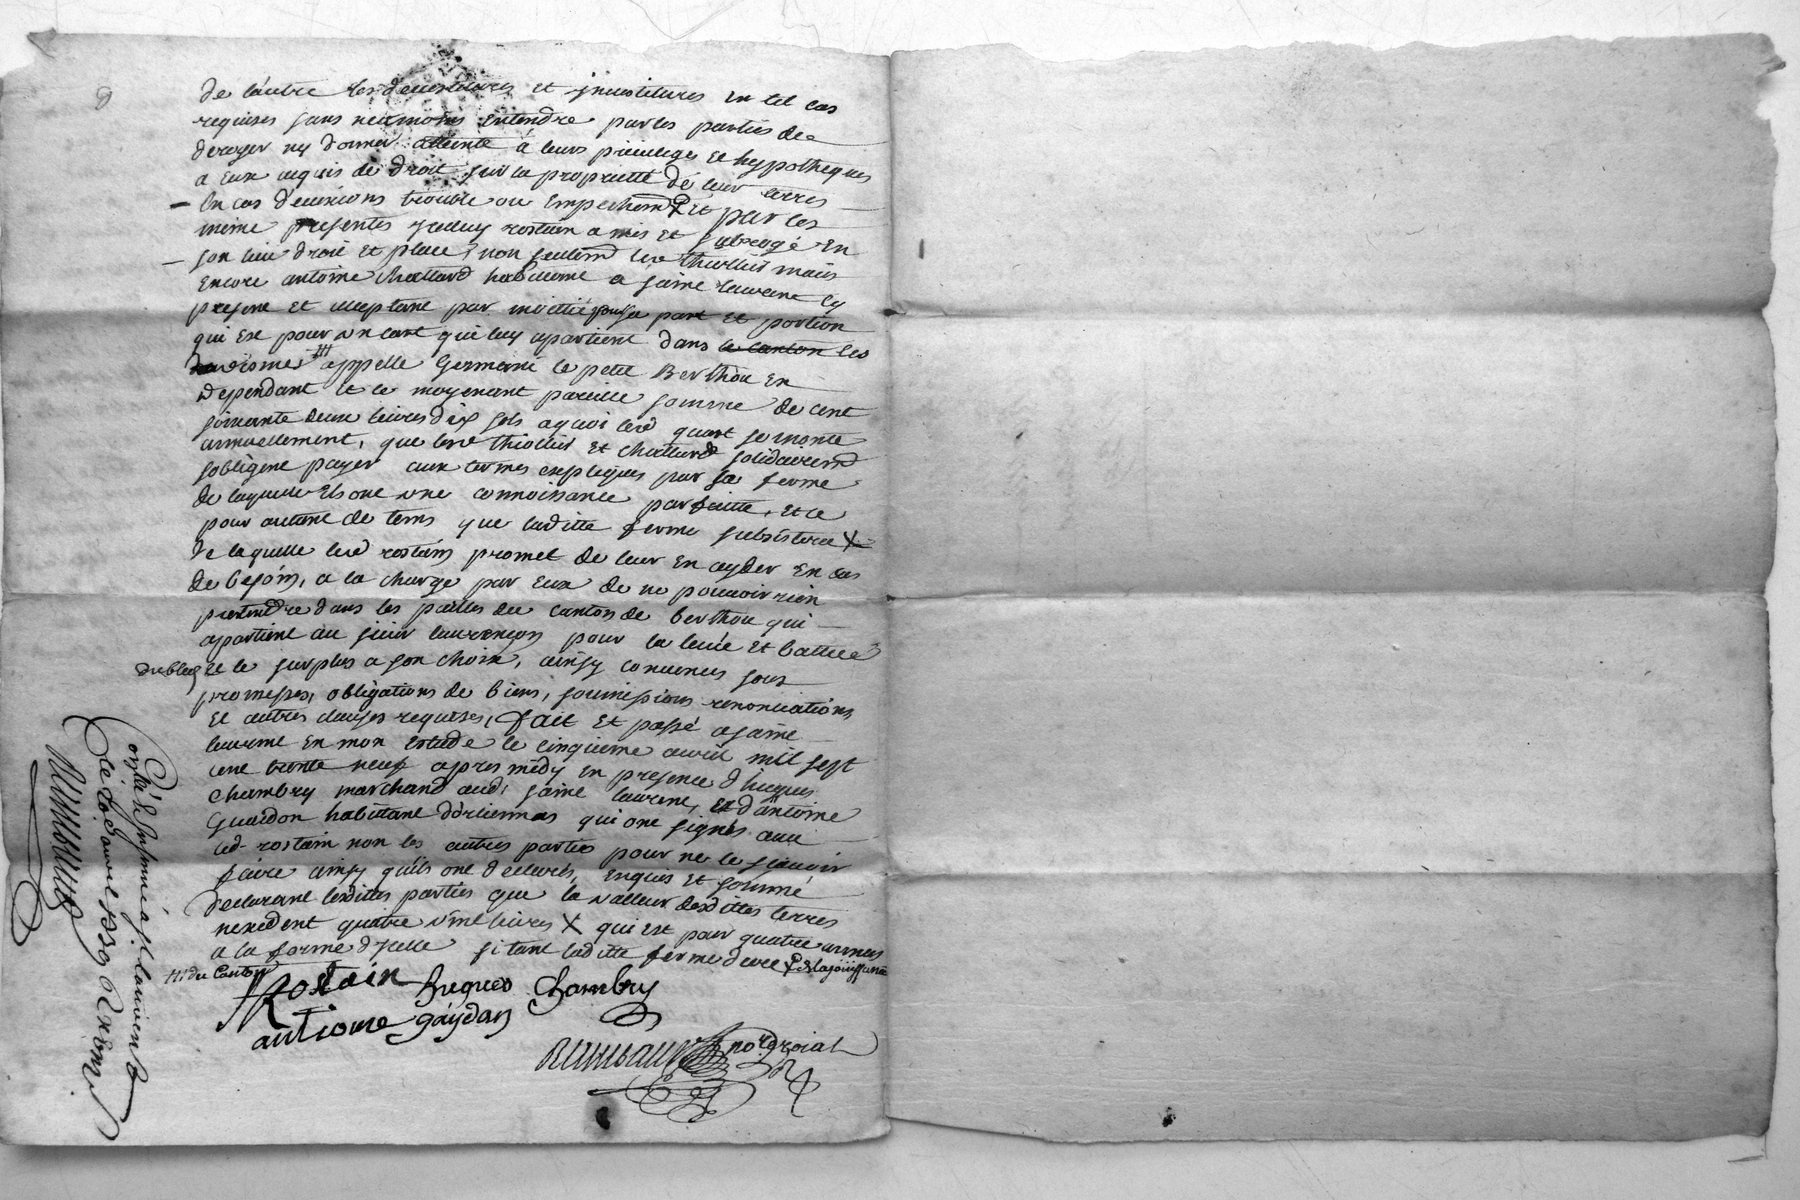 de lautre les devestitures et jnvestitures en tel cas
requises sans neanmoins entendre par les parties de
deroger ny donner atteinte á leurs privileges et hypotheques
a eux aquis de droit sur la proprietté de leur terres
En cas d'evictions trouble ou Empechem et par ces
meme presentes rostain a mis et subrogé en
son lieu droit et place non seulemt thiollier mais
Encore antoine chattard habitant a saint laurent cy
present et acceptant par moitié pour sa part et portion
qui est pour un cart qui luy apartient dans le canton les
appelle Germani le petit Berthou En
dependant et ce moyenant pareille somme de cent
soixante deux livres dix sols a quoi led quart se monte
annuellement, que led thiollier et chattard solidairemt
sobligent payer aux termes expliqués par sa ferme
de laquelle ils ont une connoissance parfaitte, et ce
pour autant de tems que laditte ferme subsistera X
de laquelle led rostain promet de leur En ayder En cas
de besoin, a la charge par Eux de ne pouvoir rien
pretendre dans les pailles du canton de berthou qui
apartient au sieur laurençon pour la levée et battue
du bled et le surplus a son choix, ainsy convenus sous
promesses, obligations de biens, soumissions renonciations
Et autres clauses requises, fait et passé a saint
laurent En mon Estude le cinquieme avril mil sept
cent trente neuf apres midy en presence d'hugues
Chambry marchand aud. saint laurent, et d'antoine
Guaidon habitant d'orliennas qui ont signés avec
led. rostain non les autres parties pour ne le scavoir
faire ainsy quils ont declarés, Enquis et sommé
declarant lesdites parties que la valleur desdittes terres
nexedent quatre vint livres X qui est pour quatre années
a la forme d'jcelle si tant laditte ferme dure de la joüissance
/// du Canton
Rostain hugues Chambry
antione gaÿdan
Rimbaud nore roial
Conllé & Insinué a st laurent
le dix avril 1739 R
Rimbaud